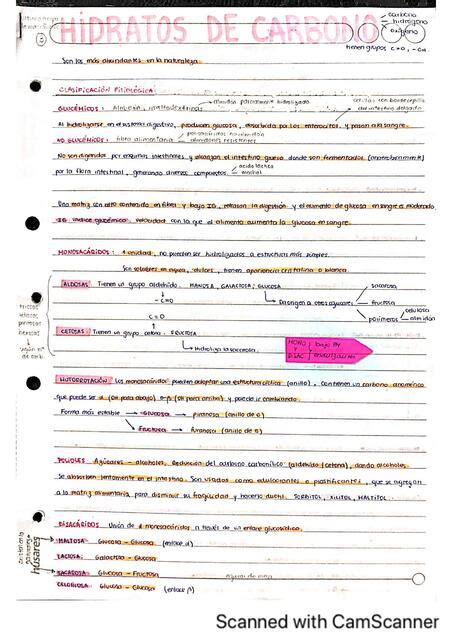 HIDRATOS DE CARBONO
carbono
hidrógeno
oxígeno
tienen grupos C=O, -OH.
Son los más abundantes en la naturaleza.
CLASIFICACIÓN FISIOLÓGICA:
GLUCÉMICOS: Almidón, maltodextrinas almidón parcialmente hidrolizado
células con borde en cepillo del intestino delgado
Al hidrolizarse en el sistema digestivo, producen glucosa, absorbida por los enterocitos, y pasan a la sangre.
NO GLUCÉMICOS: fibra alimentaria
polisacáridos no almidón
almidones resistentes
No son digeridos por enzimas intestinales y alcanzan el intestino grueso donde son fermentados (anaeróbicamente)
por la flora intestinal, generando diversos compuestos.
ácido láctico
Una matriz con alto contenido en fibra y bajo IG, retrasan la digestión y el aumento de glucosa en sangre es moderado.
IG índice glucémico: velocidad con la que el alimento aumenta la glucosa en sangre.
MONOSACÁRIDOS: 1 unidad, no pueden ser hidrolizados a estructuras más simples.
Son solubles en agua, dulces, tienen apariencia cristalina o blanca.
ALDOSAS: Tienen un grupo aldehído. MANOSA, GALACTOSA, GLUCOSA
-C=O
Dan origen a otros azúcares
sacarosa
fructosa
polímeros
celulosa
almidón
triosas
tetrosas
pentosas
hexosas
según nº de carb.
C=O
CETOSAS: Tienen un grupo cetona. FRUCTOSA
Hidroliza la sacarosa.
MONO Y DISAC
bajo PM
MUTORROTACIÓN: Los monosacáridos pueden adoptar una estructura cíclica (anillo). Contienen un carbono anomérico
que puede ser α (OH para abajo) o β (OH para arriba) y puede ir cambiando.
Forma más estable → Glucosa → piranosa (anillo de 6)
Fructosa → furanosa (anillo de 5)
POLIOLES: Azúcares - alcoholes. Reducción del carbono carbonílico (aldehído/cetona), dando alcoholes.
Se absorben lentamente en el intestino. Son usados como edulcorantes o plastificantes, que se agregan
a la matriz alimentaria, para disminuir su fragilidad y hacerlo dúctil. SORBITOL, XILITOL, MALTITOL.
DISACÁRIDOS: Unión de 2 monosacáridos a través de un enlace glucosídico.
MALTOSA: Glucosa - Glucosa (enlace α)
LACTOSA: Galactosa - Glucosa
SACAROSA: Glucosa - Fructosa
azúcar de mesa
CELOBIOSA: Glucosa - Glucosa (enlace β)
Scanned with CamScanner